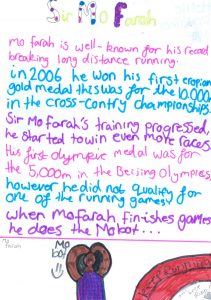 Sir Mo Farah
Mo farah is well-known for his record
breaking long distance running.
in 2006 he won his first eropian
gold medal this was for the 10.000m
in the cross-contry championships.
Sir Mo Farah's training progressed,
he started to win even more races.
His first olympic medal was for
the 5,000m in the Beijing Olympics,
however he did not qualify for
one of the running games!
when Mo farah finishes games
he does the Mobot...
Mo
farah
Mo
bot